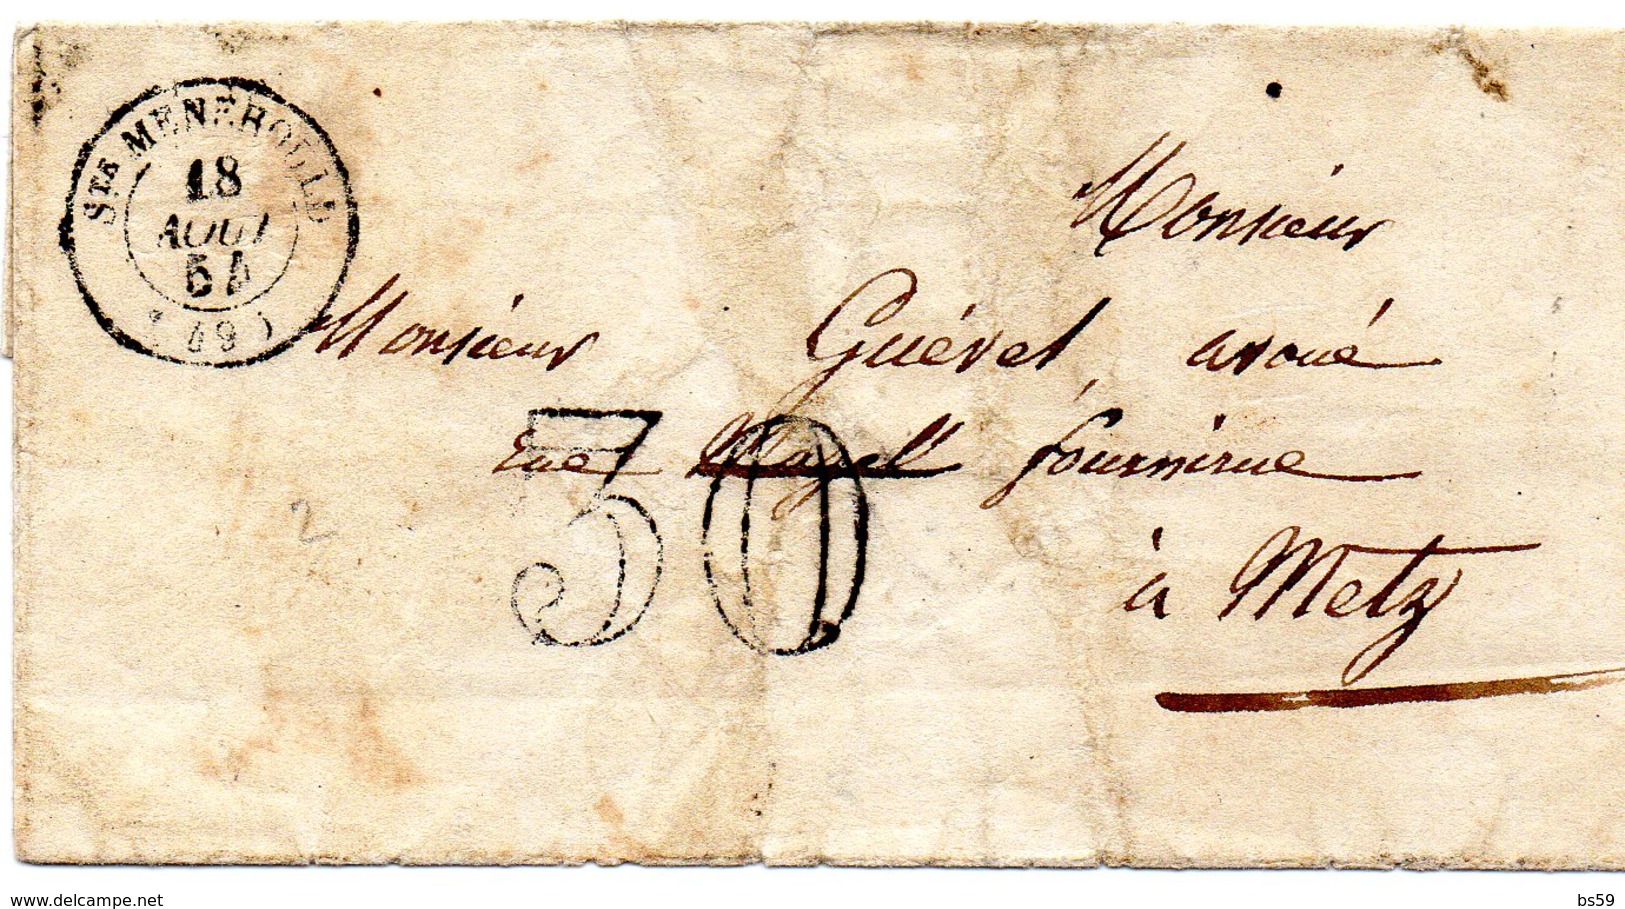 STE MENEHOULD
18
AOUT
54
( 49 )
Monsieur
Monsieur Guéret, avoué
rue Mazell fournirue
30
à Metz
2
delcampe.net
bs59